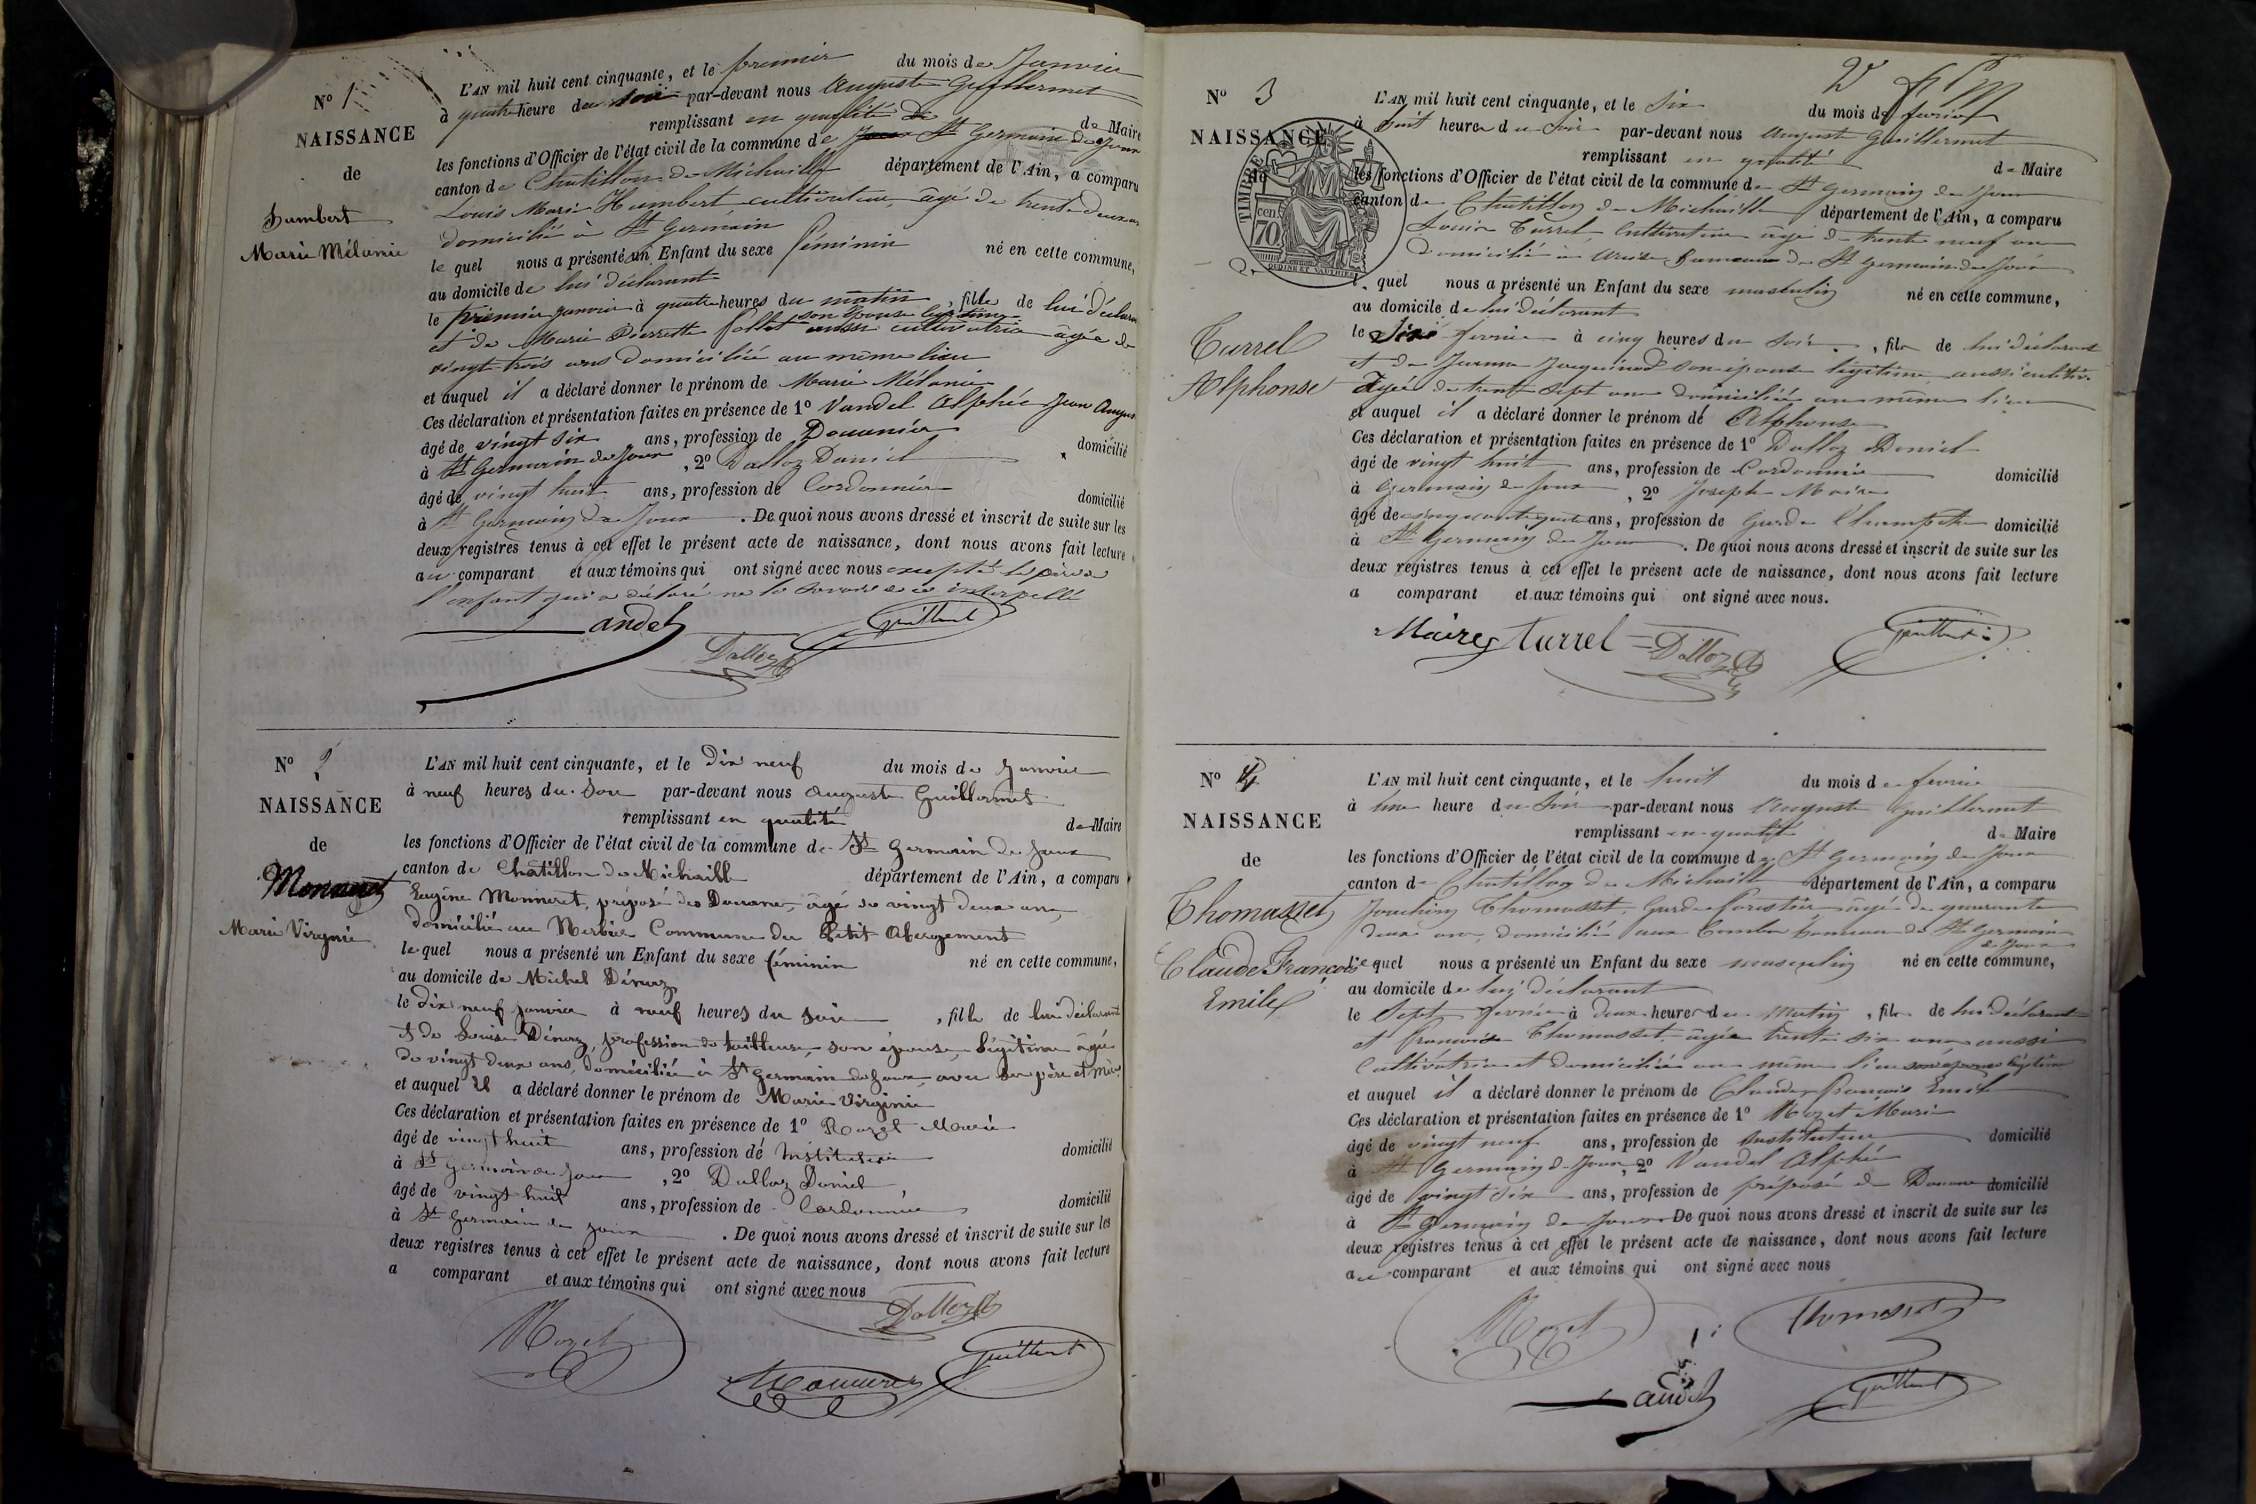 N° 1
NAISSANCE
de
humbert
Marie Mélanie
L'AN mil huit cent cinquante, et le premier du mois de Janvier
à quatre heure du soir par-devant nous Auguste Guillermet
remplissant en qualité de de Maire
les fonctions d'Officier de l'état civil de la commune de St Germain de Joux
canton de Chatillon de Michaille département de l'Ain, a comparu
Louis Marie Humbert cultivateur, âgé de trente deux ans
domicilié à St Germain
le quel nous a présenté un Enfant du sexe féminin né en cette commune,
au domicile de lui déclarant
le premier janvier à quatre heures du matin, fille de lui déclarant
son épouse légitime
et de Marie Pierrette aussi cultivatrice âgée de
vingt trois ans domiciliée au même lieu
et auquel il a déclaré donner le prénom de Marie Mélanie
Ces déclaration et présentation faites en présence de 1° Vandel Alphée Jean August
âgé de vingt six ans, profession de Douanier domicilié
à St Germain de Joux, 2° Dalloz Daniel
âgé de vingt huit ans, profession de Cordonnier domicilié
à St Germain de Joux. De quoi nous avons dressé et inscrit de suite sur les
deux registres tenus à cet effet le présent acte de naissance, dont nous avons fait lecture
au comparant et aux témoins qui ont signé avec nous excepté le père de
l'enfant qui a déclaré ne le savoir de ce interpellé
Vandel
Dalloz
Guillermet
N° 2
NAISSANCE
de
Monneret
Marie Virginie
L'AN mil huit cent cinquante, et le dix neuf du mois de Janvier
à neuf heures du Soir par-devant nous Auguste Guillermet
remplissant en qualité de Maire
les fonctions d'Officier de l'état civil de la commune de St Germain de Joux
canton de Chatillon de Michaille département de l'Ain, a comparu
Eugène Monneret, préposé des Douanes, âgé de vingt deux ans,
domicilié au Commune du Petit Abergement
le quel nous a présenté un Enfant du sexe féminin né en cette commune,
au domicile de Michel Dénarz
le dix neuf janvier à neuf heures du soir, fille de lui déclarant
et de Louise Dénarz, profession de tailleuse, son épouse légitime âgée
de vingt deux ans, domiciliée à St Germain de Joux, avec ses père et mère
et auquel il a déclaré donner le prénom de Marie Virginie
Ces déclaration et présentation faites en présence de 1° Rozet Marie
âgé de vingt huit ans, profession de Instituteur domicilié
à St Germain de Joux, 2° Dalloz Daniel
âgé de vingt huit ans, profession de Cordonnier domicilié
à St Germain de Joux. De quoi nous avons dressé et inscrit de suite sur les
deux registres tenus à cet effet le présent acte de naissance, dont nous avons fait lecture
a comparant et aux témoins qui ont signé avec nous
Dalloz
Rozet
Monneret
Guillermet
N° 3
NAISSANCE
de
TIMBRE
70 cen
OUDINÉ ET VAUTHIER
Turrel
Alphonse
L'AN mil huit cent cinquante, et le six du mois de fevrier
à huit heures du Soir par-devant nous August Guillermet
remplissant en qualité de Maire
les fonctions d'Officier de l'état civil de la commune de St Germain de Joux
canton de Chatillon de Michaille département de l'Ain, a comparu
Louis Turrel, Cultivateur âgé de trente neuf ans
Domicilié à hameau de St Germain de Joux
le quel nous a présenté un Enfant du sexe masculin né en cette commune,
au domicile de lui déclarant
le Six fevrier à cinq heures du Soir, fils de lui déclarant
et de son épouse légitime, aussi cultiv.
âgée de trente Sept ans domiciliée au même lieu
et auquel il a déclaré donner le prénom de Alphonse
Ces déclaration et présentation faites en présence de 1° Dalloz Daniel
âgé de vingt huit ans, profession de Cordonnier domicilié
à Germain de Joux, 2° Joseph Maire
âgé de ans, profession de Garde Champêtre domicilié
à St Germain de Joux. De quoi nous avons dressé et inscrit de suite sur les
deux registres tenus à cet effet le présent acte de naissance, dont nous avons fait lecture
a comparant et aux témoins qui ont signé avec nous.
Maire Turrel Dalloz
Guillermet
N° 4
NAISSANCE
de
Thomasset
Claude François
Emile
L'AN mil huit cent cinquante, et le huit du mois de fevrier
à une heure du Soir par-devant nous Auguste Guillermet
remplissant en qualité de Maire
les fonctions d'Officier de l'état civil de la commune de St Germain de Joux
canton de Chatillon de Michaille département de l'Ain, a comparu
Joachim Thomasset, Garde forestier âgé de quarante
deux ans, domicilié aux hameau de St Germain
de Joux
le quel nous a présenté un Enfant du sexe masculin né en cette commune,
au domicile de lui déclarant
le Sept fevrier à deux heures du matin, fils de lui déclarant
et françoise Thomasset, âgée trente six ans, aussi
Cultivatrice et domiciliée au même lieu son épouse légitime
et auquel il a déclaré donner le prénom de Claude françois Emile
Ces déclaration et présentation faites en présence de 1° Rozet Marie
âgé de vingt neuf ans, profession de Instituteur domicilié
à St Germain de Joux, 2° Vandel Alphée
âgé de vingt six ans, profession de préposé de Douane domicilié
à St Germain de Joux. De quoi nous avons dressé et inscrit de suite sur les
deux registres tenus à cet effet le présent acte de naissance, dont nous avons fait lecture
au comparant et aux témoins qui ont signé avec nous
Rozet
Thomasset
Vandel
Guillermet